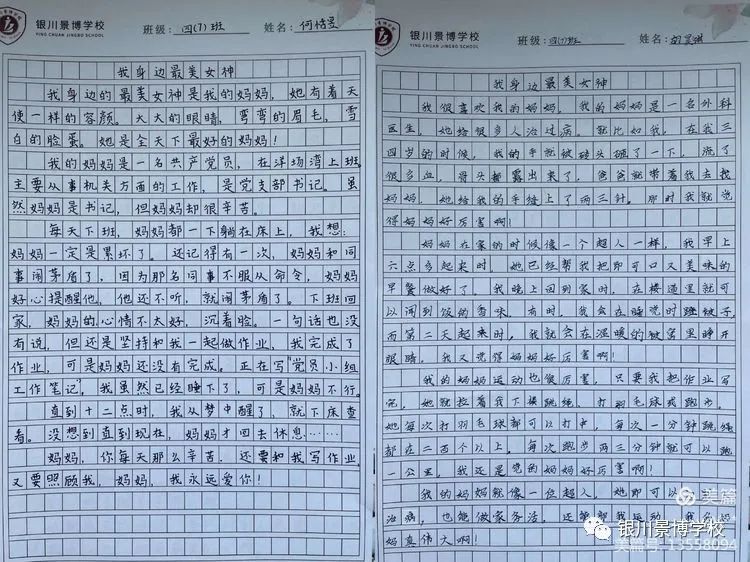 银川景博学校
YIN CHUAN JINGBO SCHOOL
班级：四(7)班
姓名：何恬昱
我身边最美女神
我身边的最美女神是我的妈妈，她有着天
使一样的容颜。大大的眼睛，弯弯的眉毛，雪
白的脸蛋。她是全天下最好的妈妈！
我的妈妈是一名共产党员，在洋场湾上班
主要从事机关方面的工作，是党支部书记。虽
然妈妈是书记，但妈妈却很辛苦。
每天下班，妈妈都一下躺在床上，我想：
妈妈一定是累坏了。还记得有一次，妈妈和同
事闹茅盾了，因为那名同事不服从命令，妈妈
好心提醒他，他还不听，就闹茅盾了。下班回
家，妈妈的心情不太好，沉着脸。一句话也没
有说，但还是坚持和我一起做作业，我完成了
作业，可是妈妈还没有完成。正在写“党员小组
工作笔记”，我虽然已经睡下了，可是妈妈不行。
直到十二点时，我从梦中醒了，就下床查
看。没想到直到现在，妈妈才回去休息……
妈妈，你每天那么辛苦，还要和我写作业，
又要照顾我，妈妈，我永远爱你！
银川景博学校
YIN CHUAN JINGBO SCHOOL
班级：四(7)班
姓名：
我身边最美女神
我很喜欢我的妈妈，我的妈妈是一名外科
医生，她给很多人治过病。就比如我，在我三
四岁的时候，我的手就被砖头砸了一下，流了
很多血，骨头都露出来了，爸爸就带着我去找
妈妈，她给我的手缝上了两三针。那时我就觉
得妈妈好厉害啊！
妈妈在家的时候像一个超人一样，我早上
六点多起来时，她已经帮我把即可口又美味的
早餐做好了。我晚上回到家时，在楼道里就可
以闻到饭的香味。有时，我会在睡觉时踢被子，
而第二天起来时，我就会在温暖的被窝里睁开
眼睛。我又觉得妈妈好厉害啊！
我的妈妈运动也很厉害，只要我把作业写
完，她就拉着我下楼跳绳、打羽毛球或跑步。
她每次打羽毛球都可以打中，每次一分钟跳绳
都在二百个以上，每次跑步两三分钟就可以跑
一公里。我还是觉的妈妈好厉害啊！
我的妈妈就像一位超人，她即可以
治病，也能做家务活，还能帮我运动，我
妈真伟大啊！
美篇
银川景博学校
美篇号：13558094